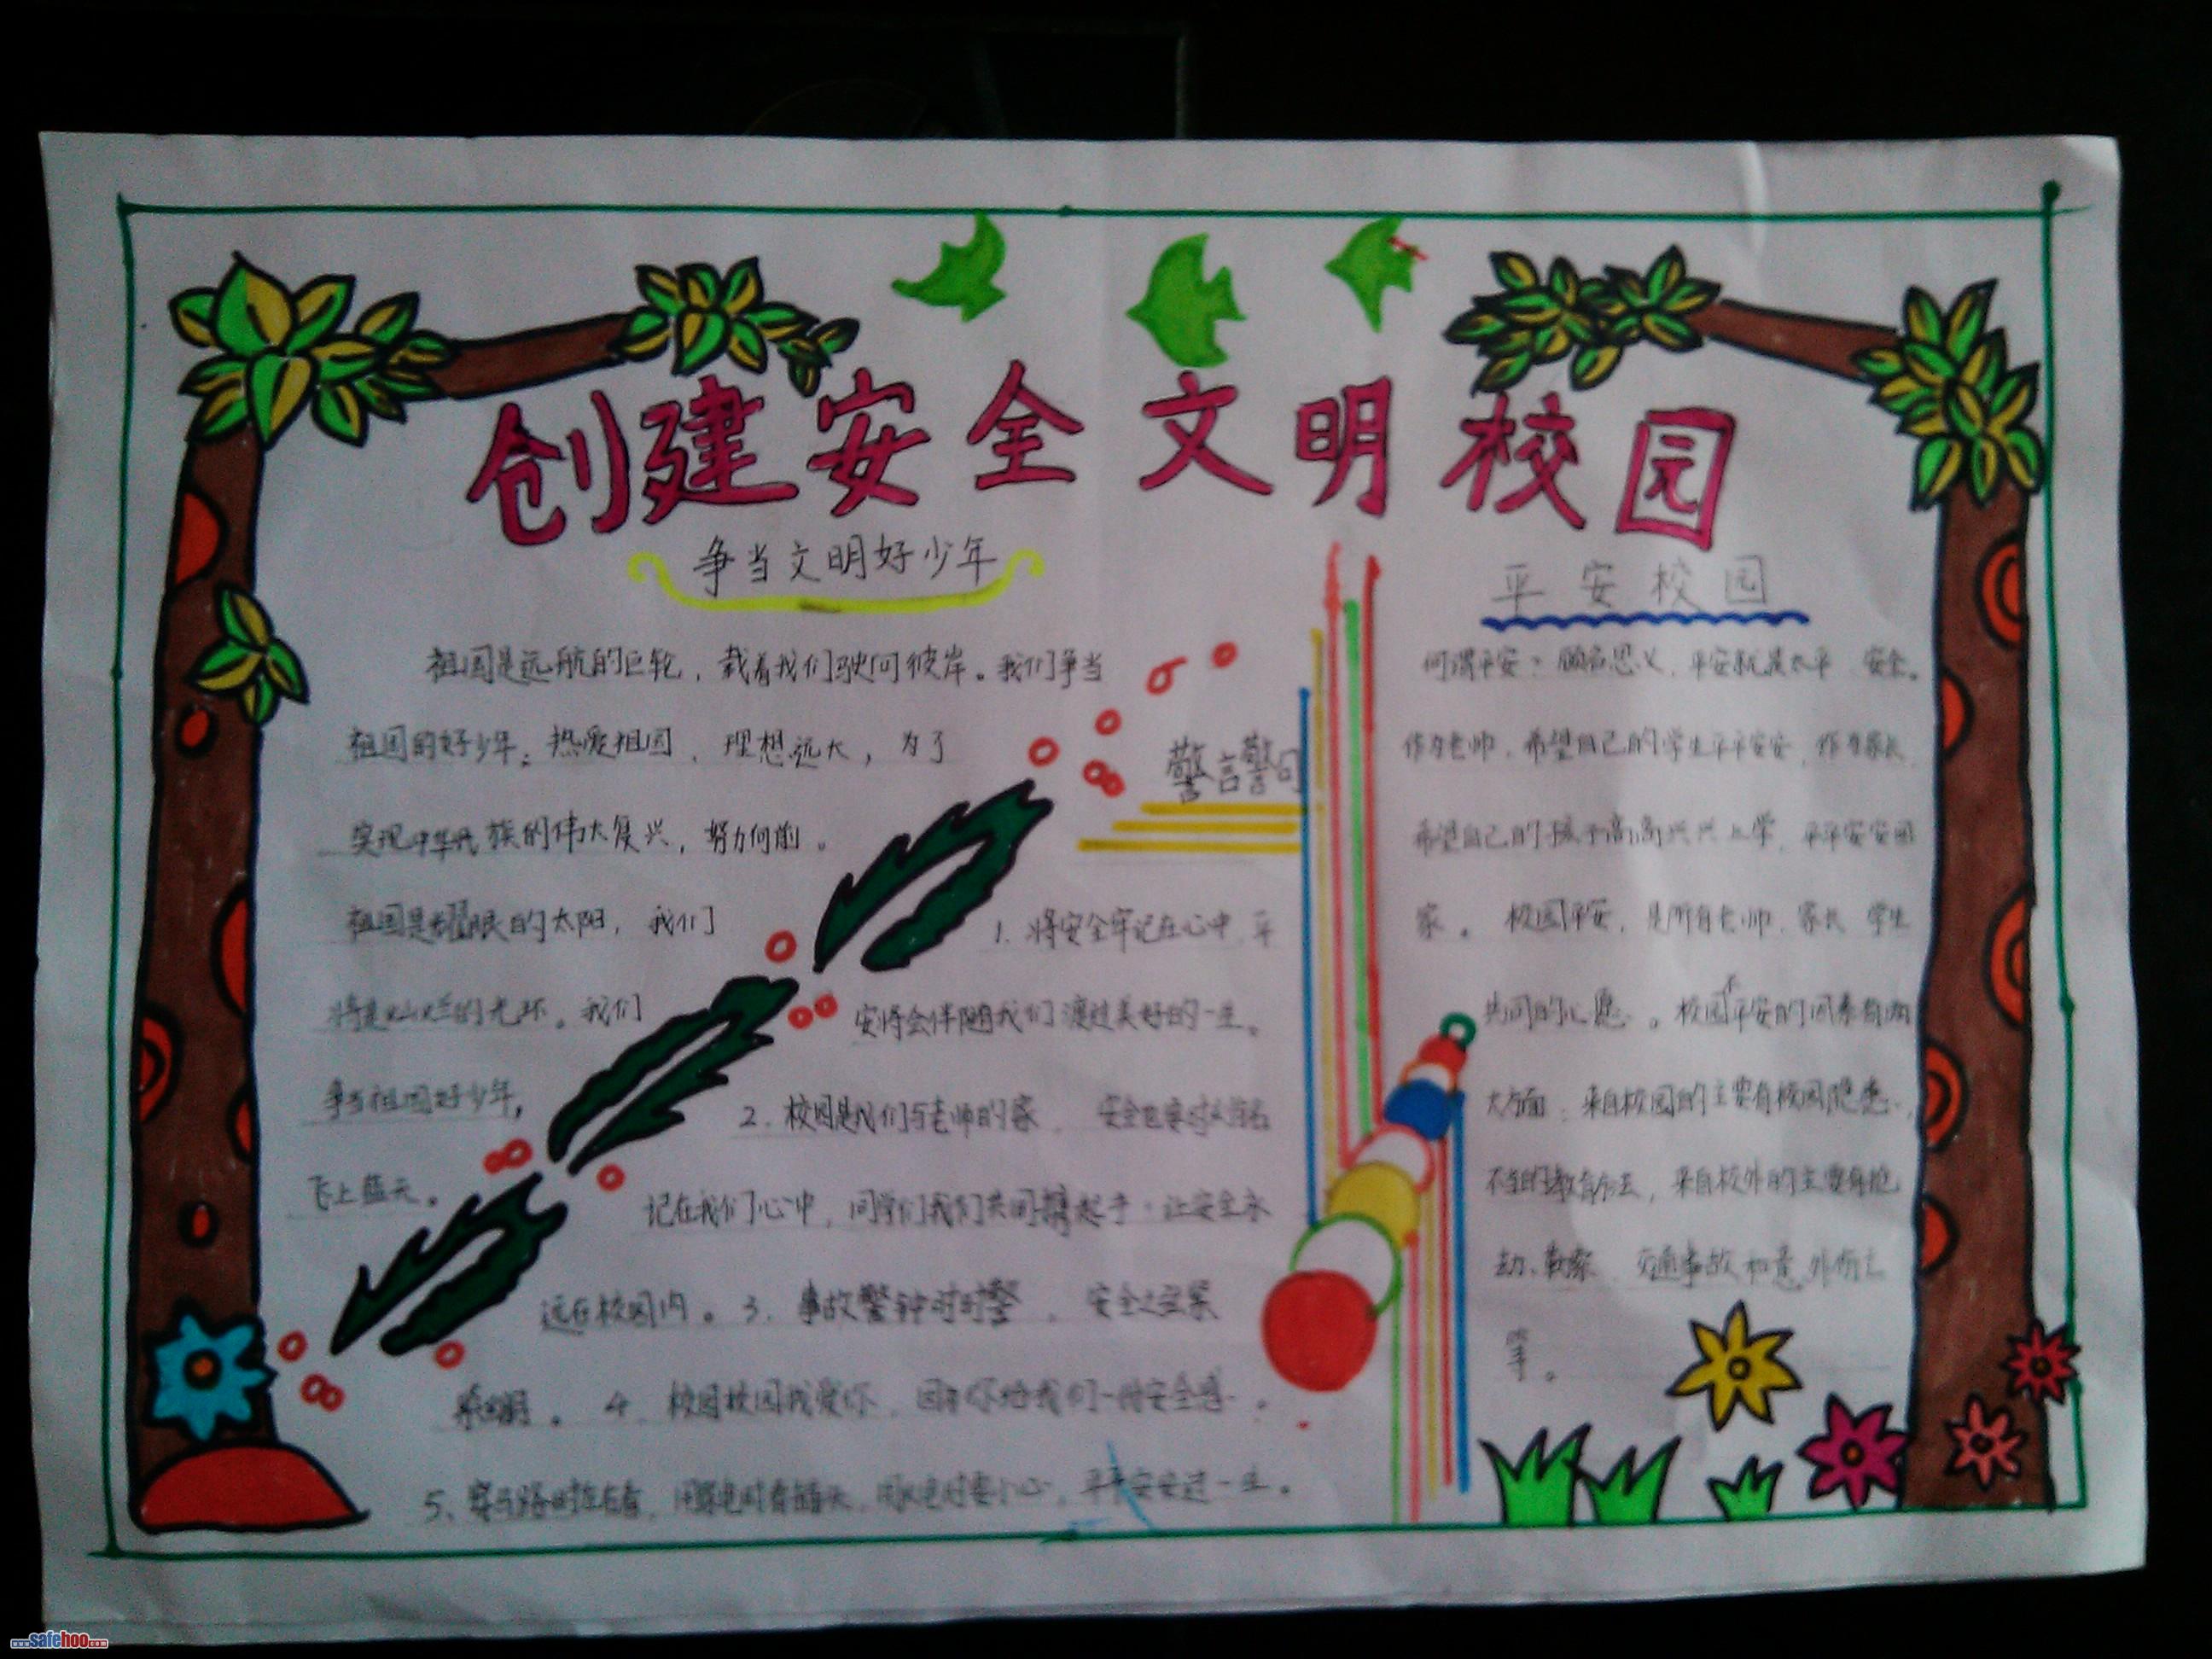 创建安全文明校园
争当文明好少年
祖国是远航的巨轮，载着我们驶向彼岸。我们争当
祖国的好少年；热爱祖国、理想远大，为了
实现中华民族的伟大复兴，努力向前。
祖国是耀眼的太阳，我们
将是灿烂的光环。我们
争当祖国好少年，
飞上蓝天。
警言警句
1、将安全牢记在心中，平
安将会伴随我们渡过美好的一生。
2、校园是我们与老师的家，安全
记在我们心中，同学们我们共同携起手，让安全永
远在校园内。3、事故警钟时时鸣，安全之弦紧
紧绷。4、校园校园我爱你，因为你给我们一份安全感。
5、穿马路时左右看，用水电时要小心，平平安安过一生。
平安校园
何谓平安？顾名思义，平安就是太平 安全。
作为老师，希望自己的学生平平安安，作为家长，
希望自己的孩子高高兴兴上学，平平安安回
家。校园平安，是所有老师、家长 学生
共同的心愿。校园不平安的因素有两
大方面：来自校园的主要有校园隐患、
不当的教育方法，来自校外的主要有抢
劫、勒索、交通事故和意外伤亡
等。
www.safehoo.com